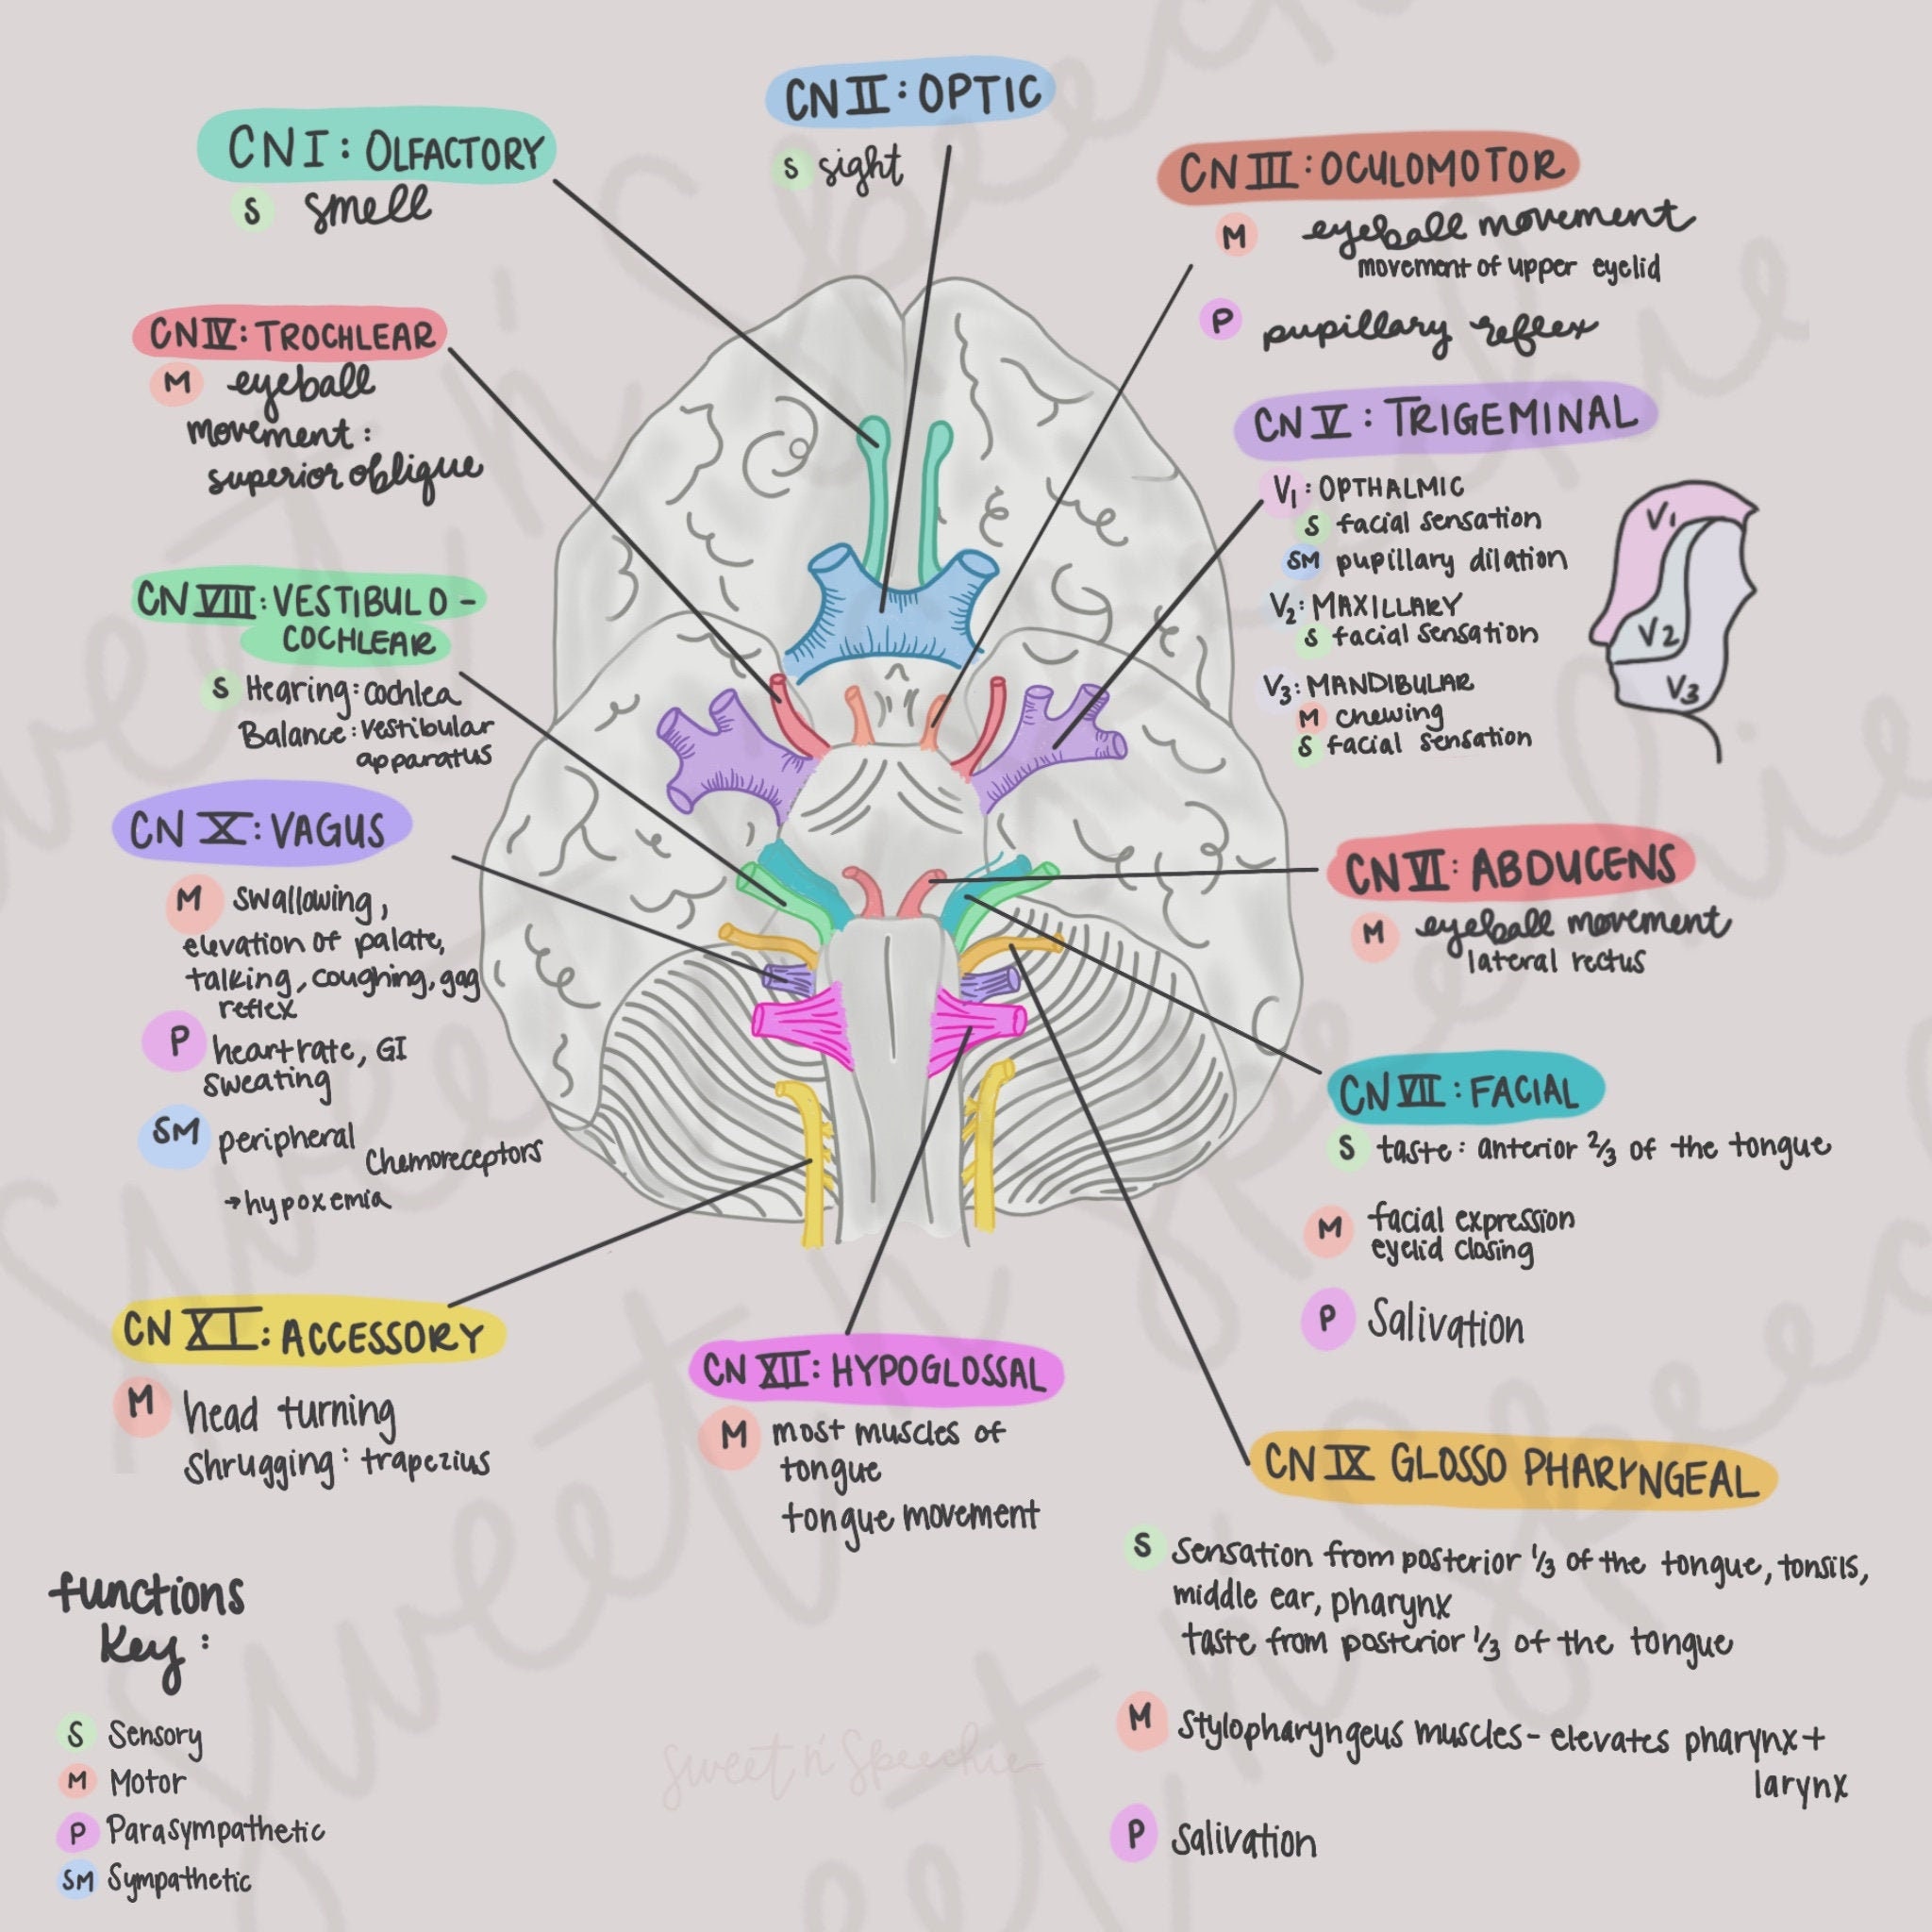 CN I: OLFACTORY
S smell
CN II: OPTIC
S sight
CN III: OCULOMOTOR
M eyeball movement
movement of upper eyelid
P pupillary reflex
CN IV: TROCHLEAR
M eyeball
movement:
superior oblique
CN V: TRIGEMINAL
V1: OPTHALMIC
S facial sensation
SM pupillary dilation
V2: MAXILLARY
S facial sensation
V3: MANDIBULAR
M chewing
S facial sensation
V1
V2
V3
CN VIII: VESTIBULO-
COCHLEAR
S Hearing: cochlea
Balance: vestibular
apparatus
CN VI: ABDUCENS
M eyeball movement
lateral rectus
CN X: VAGUS
M swallowing,
elevation of palate,
talking, coughing, gag
reflex
P heart rate, GI
sweating
SM peripheral chemoreceptors
→hypoxemia
CN VII: FACIAL
S taste: anterior 2/3 of the tongue
M facial expression
eyelid closing
P Salivation
CN XI: ACCESSORY
M head turning
shrugging: trapezius
CN XII: HYPOGLOSSAL
M most muscles of
tongue
tongue movement
CN IX GLOSSO PHARYNGEAL
S Sensation from posterior 1/3 of the tongue, tonsils,
middle ear, pharynx
taste from posterior 1/3 of the tongue
M Stylopharyngeus muscles - elevates pharynx +
larynx
P Salivation
functions
key:
S Sensory
M Motor
P Parasympathetic
SM Sympathetic
sweet n' Speechie